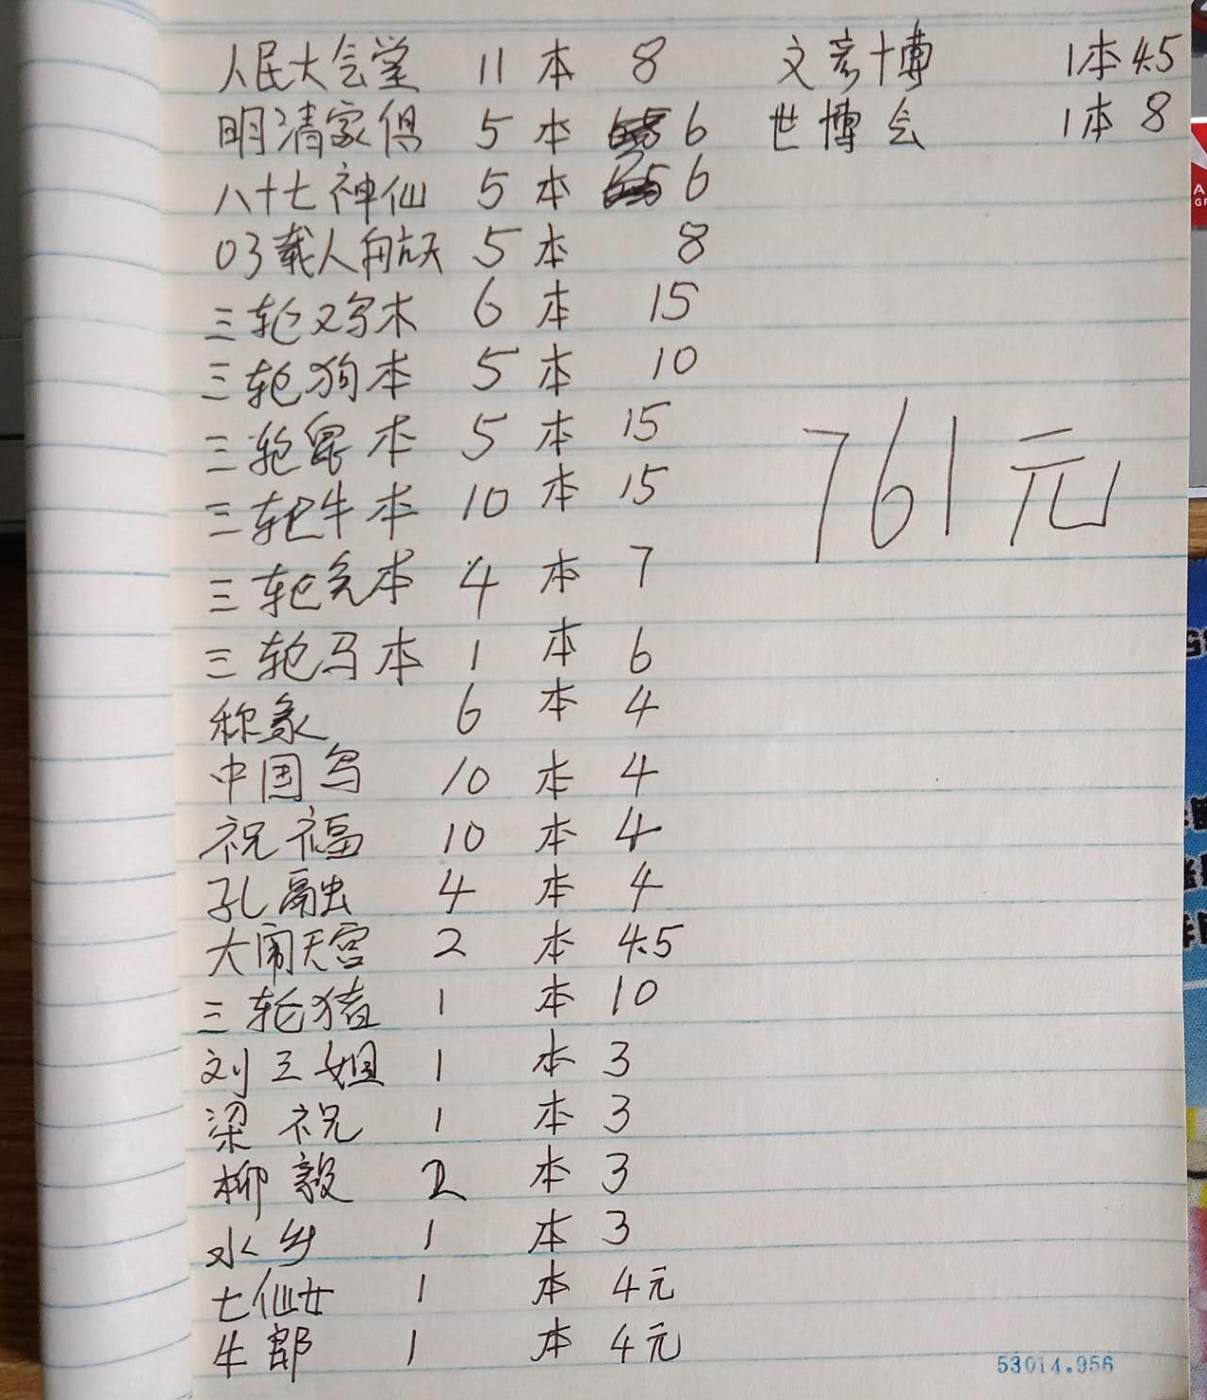 人民大会堂 11 本 8
明清家俱 5 本 6
八十七神仙 5 本 6
03载人航天 5 本 8
三轮鸡本 6 本 15
三轮狗本 5 本 10
三轮鼠本 5 本 15
三轮牛本 10 本 15
三轮兔本 4 本 7
三轮马本 1 本 6
称象 6 本 4
中国鸟 10 本 4
祝福 10 本 4
孔融 4 本 4
大闹天宫 2 本 4.5
三轮猪 1 本 10
刘三姐 1 本 3
梁祝 1 本 3
柳毅 2 本 3
水乡 1 本 3
七仙女 1 本 4元
牛郎 1 本 4元
文彦博 1本 4.5
世博会 1本 8
761元
53014.956